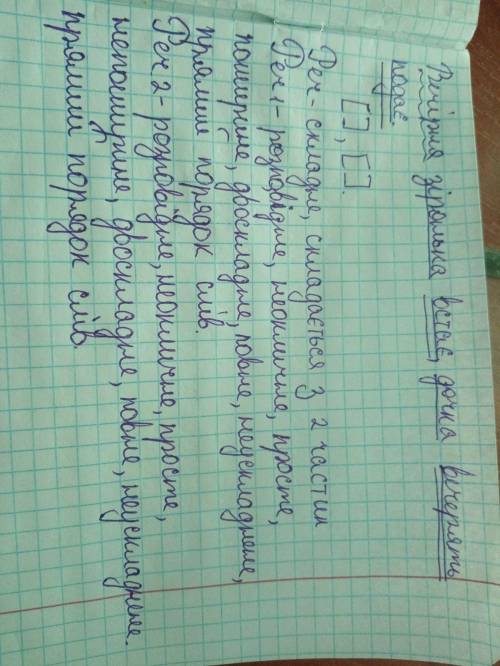 Вечірня зіронька встає, дочка вечерять
подає.
[ ], [ ].
Реч - складне, складається з 2 частин
Реч 1 - розповідне, неокличне, просте,
поширене, двоскладне, повне, неускладнене,
прямий порядок слів.
Реч. 2 - розповідне, неокличне, просте,
непоширене, двоскладне, повне, неускладнене.
прямий порядок слів.